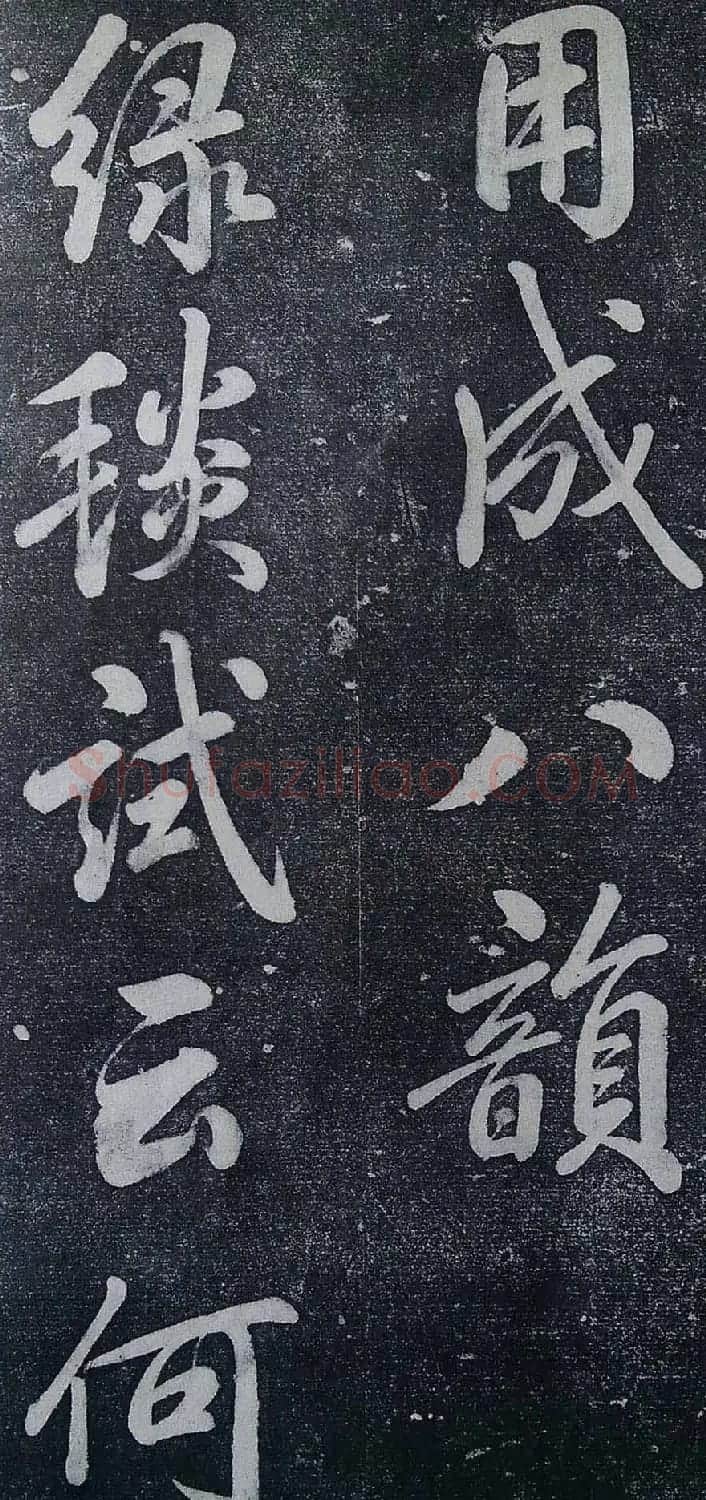 用成八韻
綠琰試云何
Shufaziliao.COM